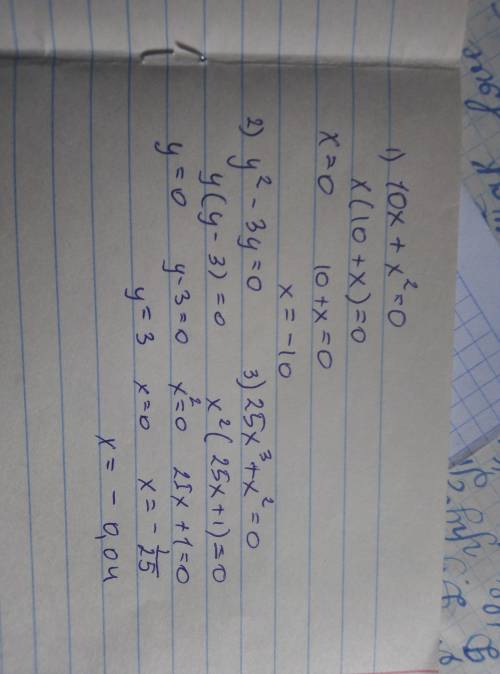 1) 10x + x² = 0
x(10 + x) = 0
x = 0 10 + x = 0
x = -10
2) y² - 3y = 0
y(y - 3) = 0
y = 0 y - 3 = 0
y = 3
3) 25x³ + x² = 0
x²(25x + 1) = 0
x² = 0 25x + 1 = 0
x = 0 x = -1/25
x = -0,04